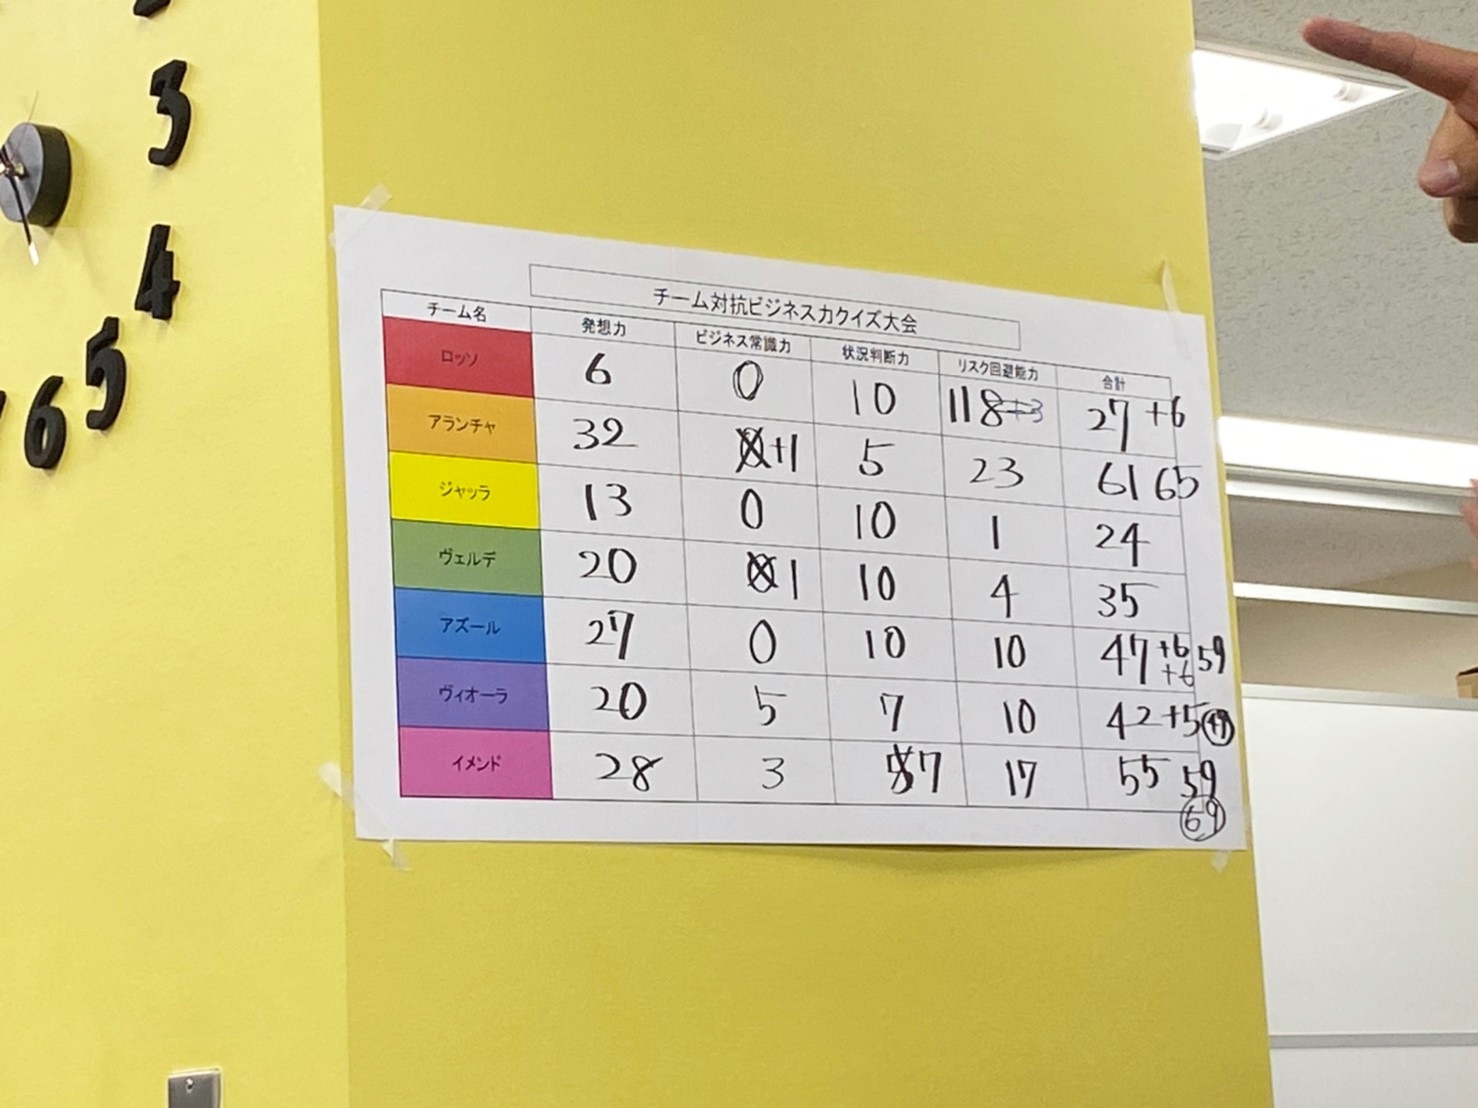 3
4
5
6
チーム対抗ビジネス力クイズ大会
チーム名 発想力 ビジネス常識力 状況判断力 リスク回避能力 合計
ロッソ 6 0 10 118+3 27 +6
アランチャ 32 +1 5 23 61 65
ジャッラ 13 0 10 1 24
ヴェルデ 20 1 10 4 35
アズール 27 0 10 10 47 +6 +6 59
ヴィオーラ 20 5 7 10 42 +5
イメンド 28 3 7 17 55 59
69